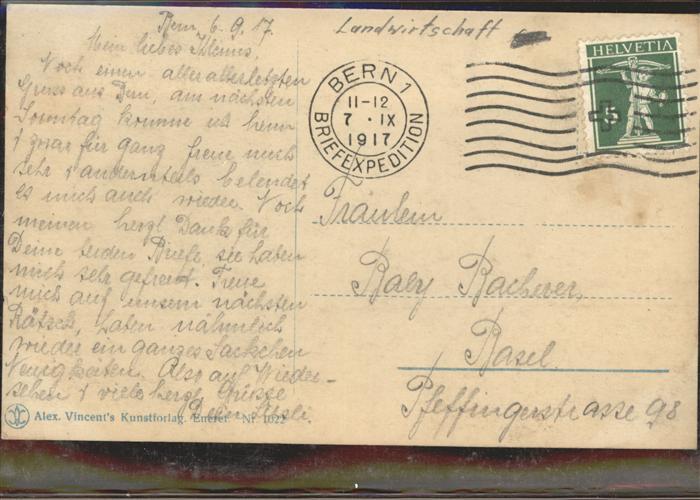 Bern 6.9.17.
Mein liebes
Noch einen allerallerletzten
Gruss aus Bern, am nächsten
Sonntag komme ich heim
& zwar für ganz, freue mich
sehr & andernteils belendet
es mich auch wieder. Noch
meinen herzl Dank für
Deine beiden Briefe, sie haben
mich sehr gefreut. Freue
mich auf unsern nächsten
Rätsch, haben nähmlich
wieder ein ganzes Säckchen
Neuigkeiten. Also auf Wieder-
sehen & viele herzl Grüsse
Dein
Alex. Vincent's Kunstforlag, Eneret. Nr. 1022
Landwirtschaft
BERN 1
11-12
7 · IX
1917
BRIEFEXPEDITION
HELVETIA
5
Fräulein
Baby Bacherer,
Basel.
Pfeffingerstrasse 98